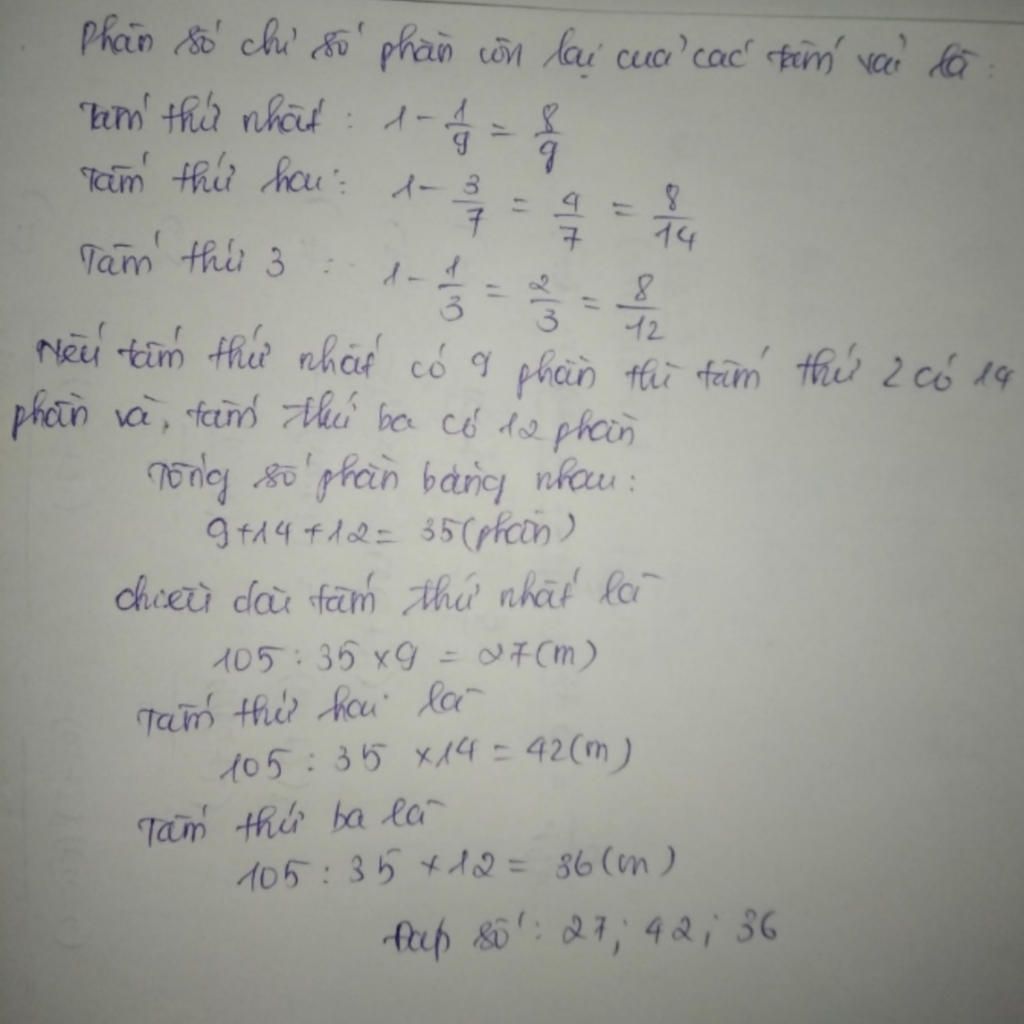 Phân số chỉ số phần còn lại của các tấm vải là:
Tấm thứ nhất: 1 - 1/9 = 8/9
Tấm thứ hai: 1 - 3/7 = 4/7 = 8/14
Tấm thứ 3 : 1 - 1/3 = 2/3 = 8/12
Nếu tấm thứ nhất có 9 phần thì tấm thứ 2 có 14
phần và, tấm thứ ba có 12 phần
Tổng số phần bằng nhau:
9+14+12= 35(phần)
chiều dài tấm thứ nhất là
105 : 35 x 9 = 27(m)
Tấm thứ hai là
105 : 35 x 14 = 42(m)
Tấm thứ ba là
105 : 35 x 12 = 36(m)
Đáp số: 27; 42; 36